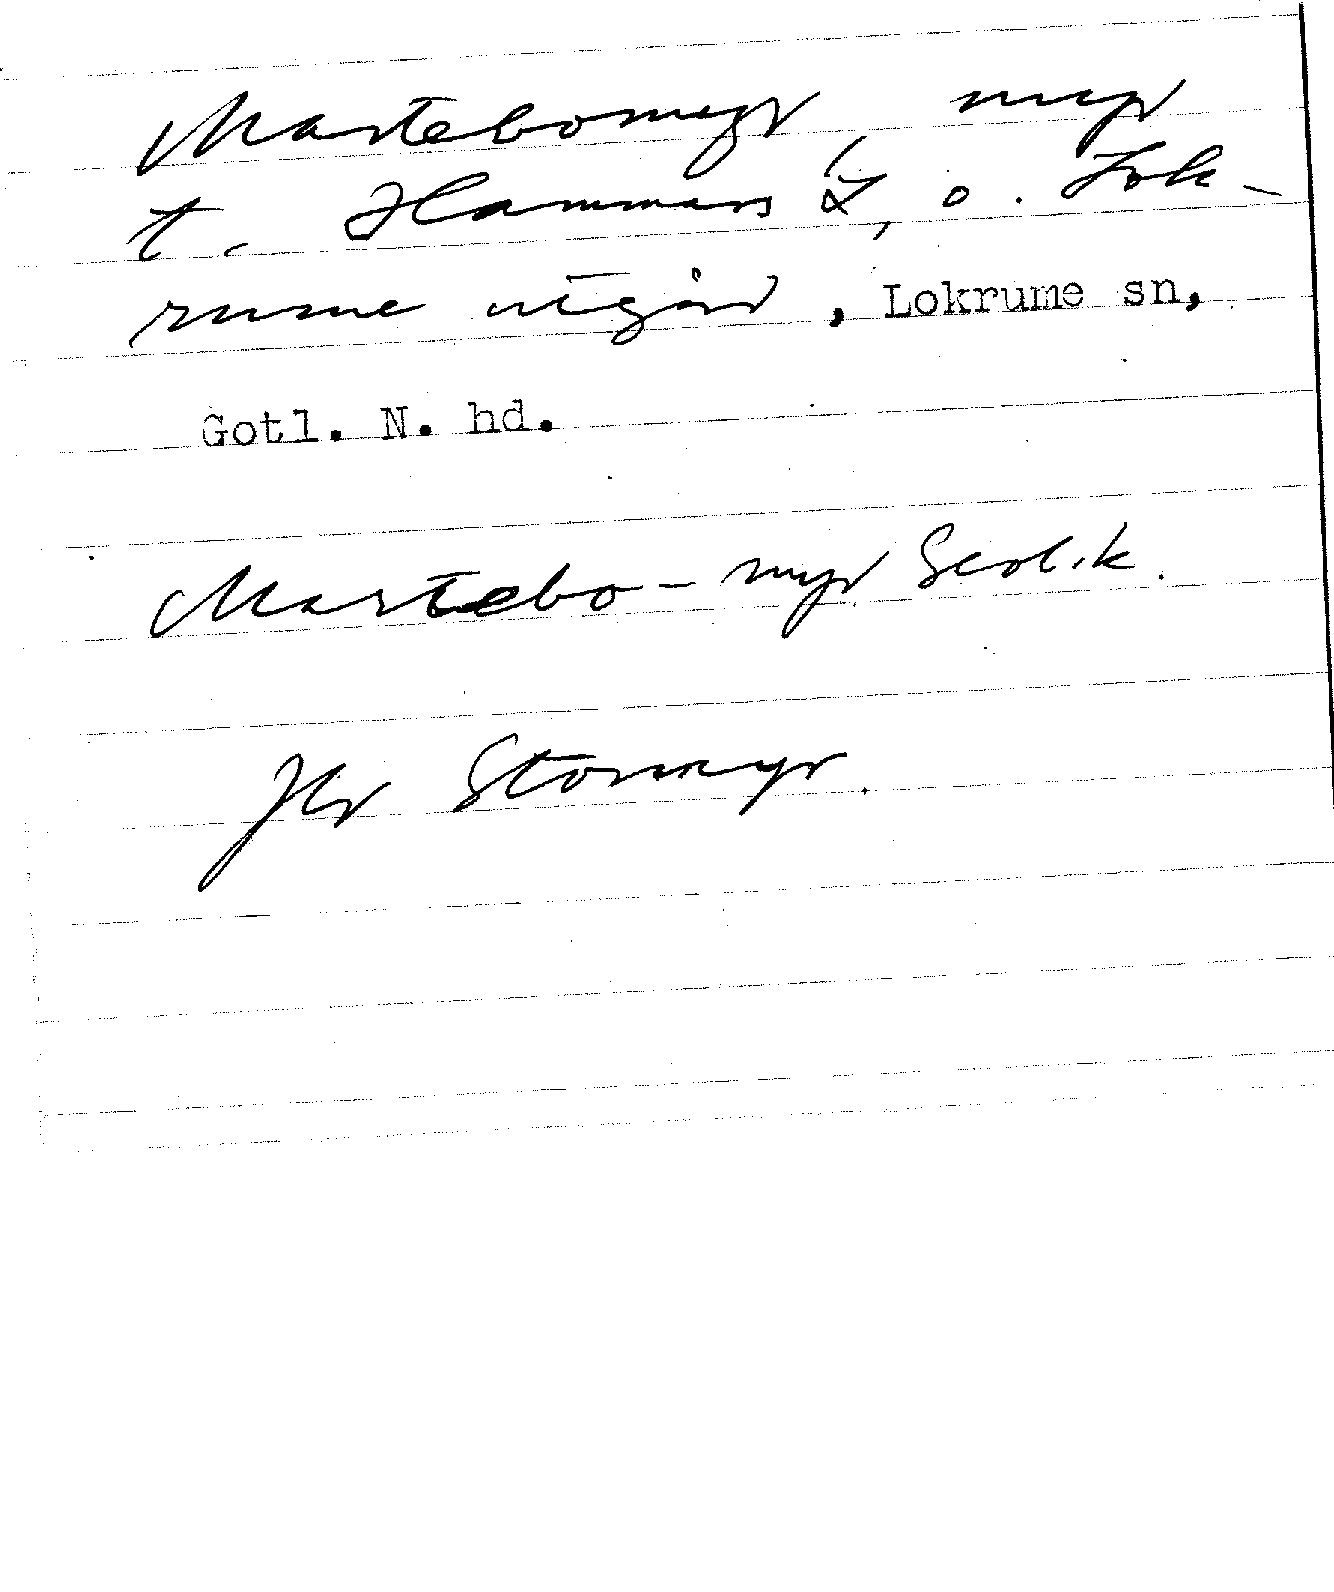 Martebomyr, myr
t. Hammars L, o. Lok-
rume utgård, Lokrume sn,
Gotl. N. hd.
Martebo-myr Geol.k.
Jfr Stormyr.